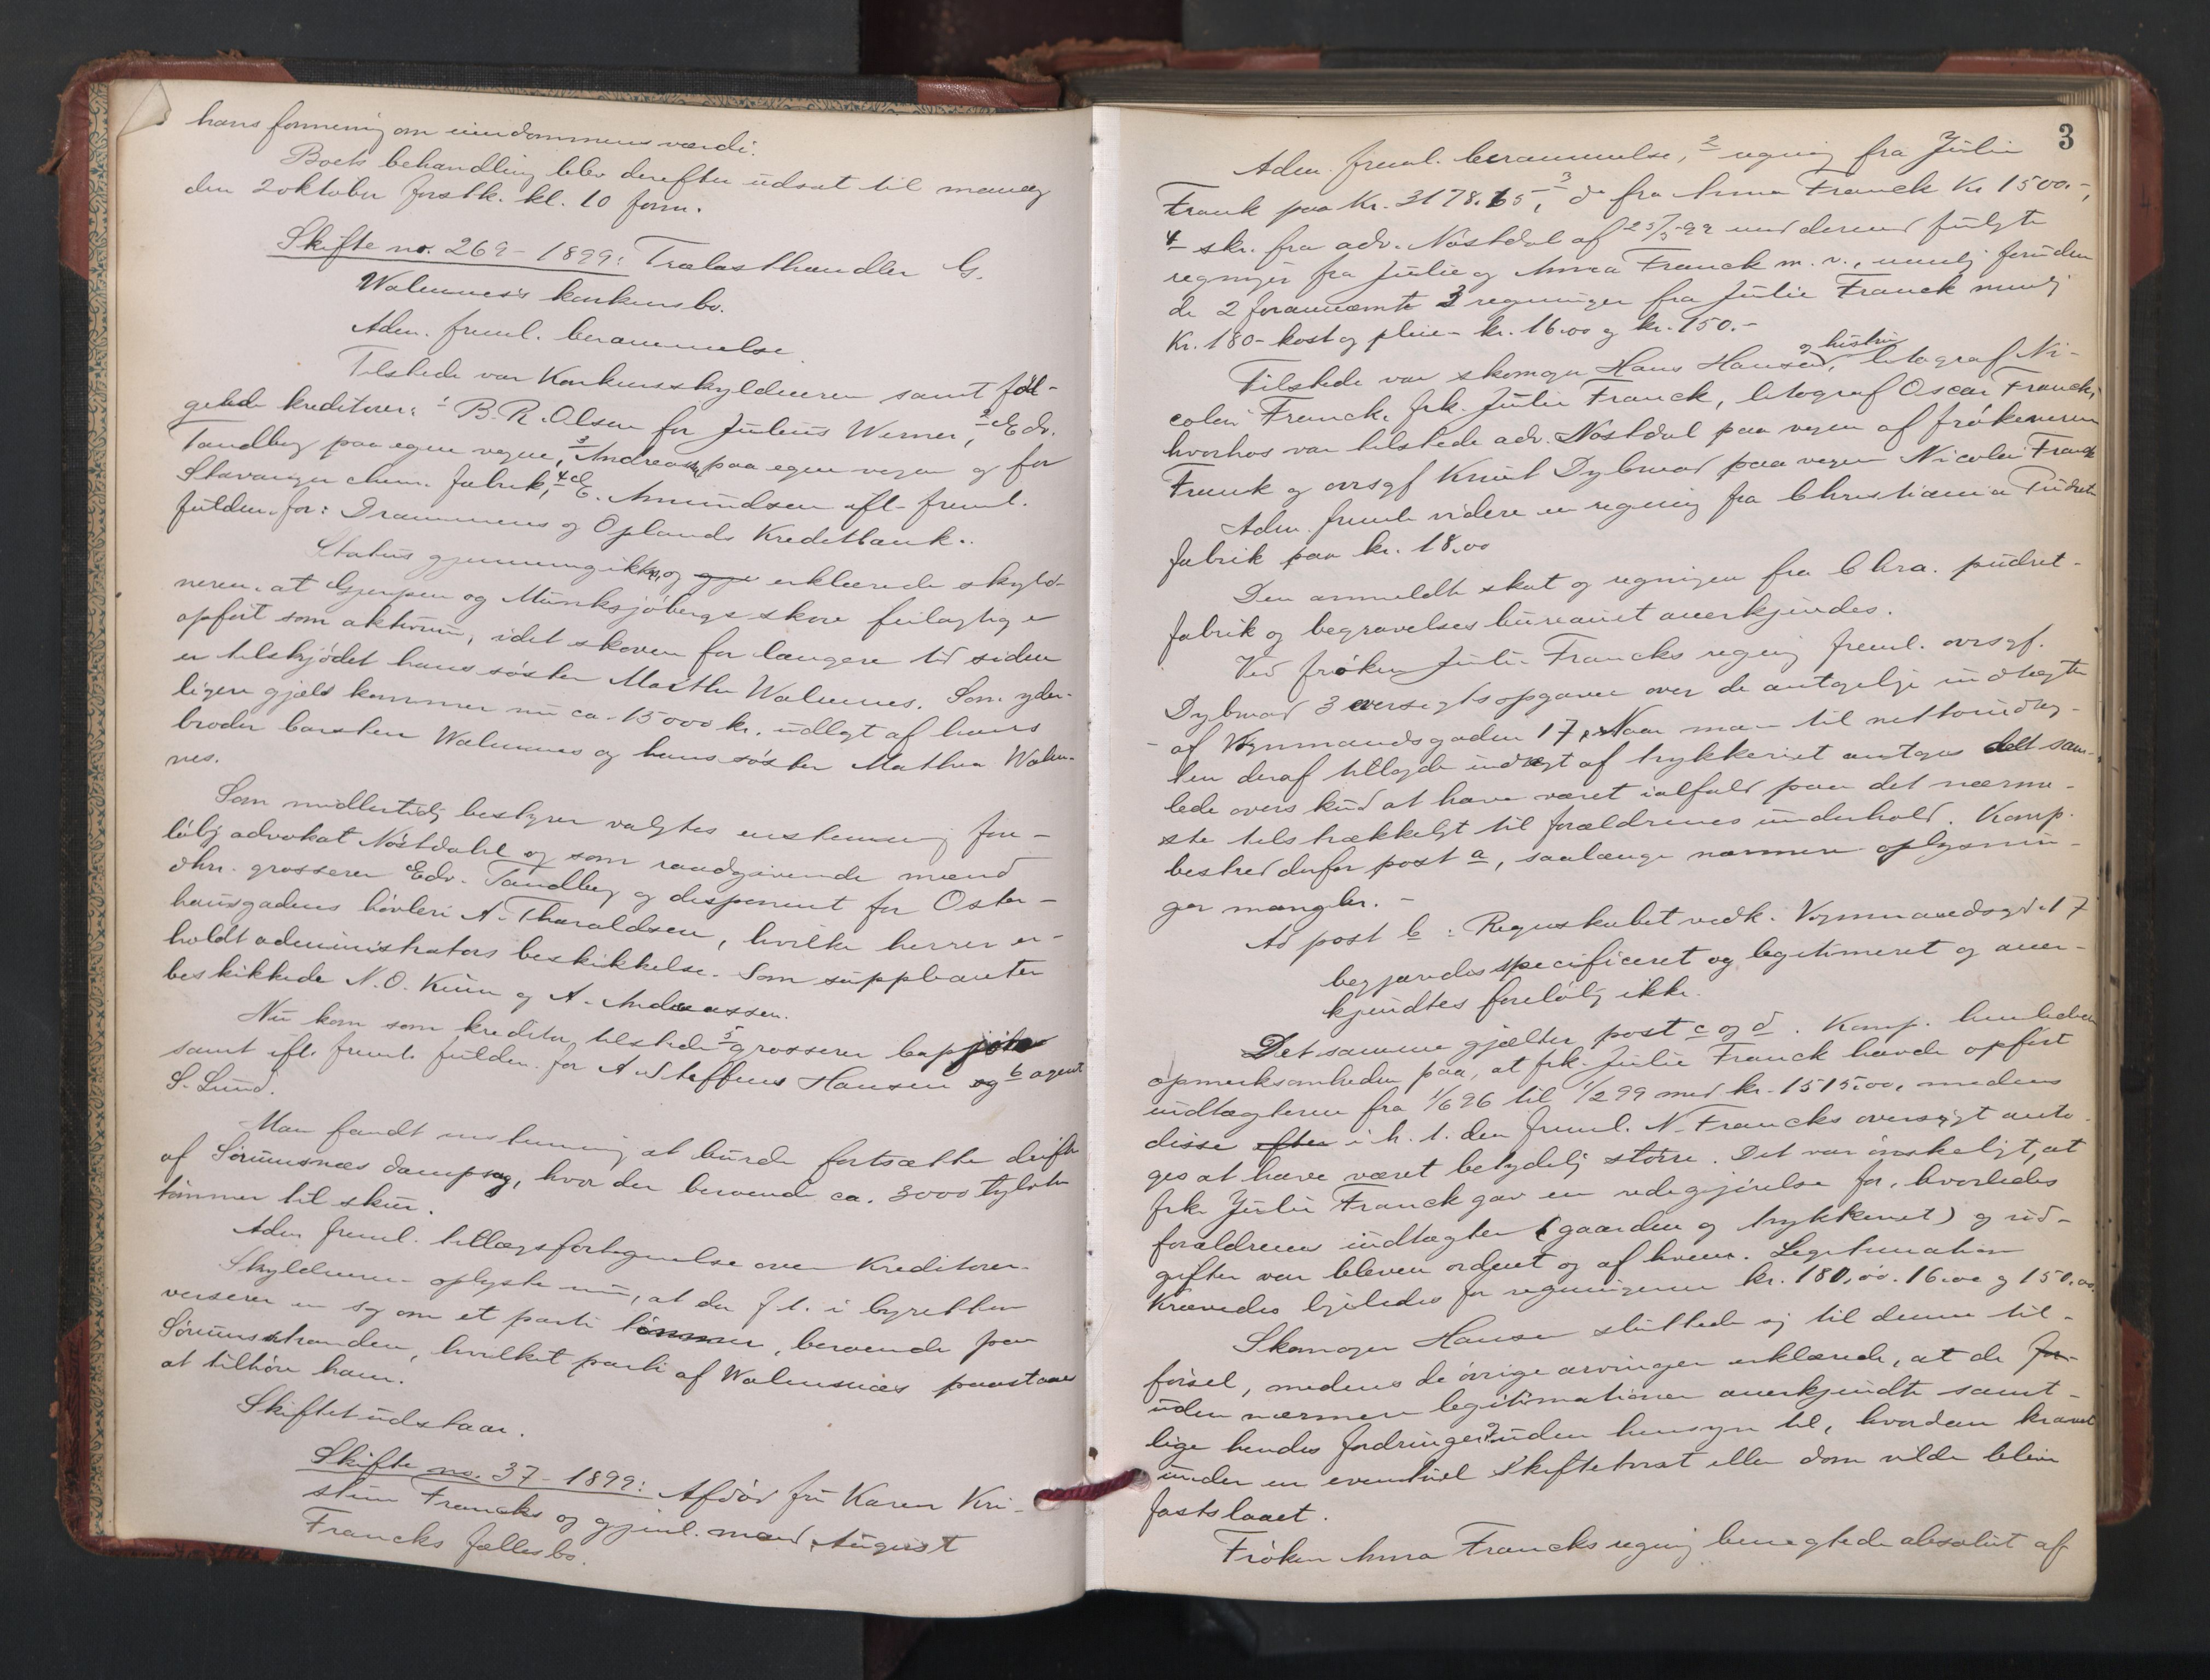 hans formening om eiendommens værdi.
Boets behandling blev derefter udsat til mandag
den 2 oktober førstk. kl. 10 form.
Skifte no. 269 - 1899: Trælasthandler G.
Walennes's konkursbo.
Adm. freml. berammelse.
Tilstede var Konkursskyldneren samt føl-
gende kreditorer: 1 B. R. Olsen for Julius Werner, 2 Edv.
Tandberg paa egne vegne, 3 Andreas paa egne vegne og for
Stavanger chem. fabrik, 4 E. Amundsen ifl. freml.
fuldm. for: Drammens og Oplands Kreditbank.
Status gjennemgikkes, og erklærede skyld-
neren, at Gjerpen og Munksjøbergs skove feilagtig er
opført som aktivum, idet skoven for længere tid siden
er tilskjødet hans søster Marthe Walennes. Som yder-
ligere gjæld kommer nu ca. 15000 kr. udlagt af hans
broder Carsten Walennes og hans søster Mathea Walen-
nes.
Som midlertidig bestyrer valgtes enstemmig fore-
løbig advokat Nøstdahl og som raadgivende mænd
dhrr. grosserer Edv. Tandberg og disponent for Oster-
hausgadens høvleri A. Tharaldsen, hvilke herrer er-
holdt administrators beskikkelse. Som suppleanter
beskikkede N. O. Kuur og A. Andreassen.
Nu kom som kreditor tilstede 5 grosserer
samt ifl. freml. fuldm. for A. Steffens Hansen og 6 agent
S. Lund.
Man fandt enstemmig at burde fortsætte driften
af Sørumsnæs dampsag, hvor der beroende ca. 3000 tylvter
tømmer til skur.
Adm. freml. tillægsfortegnelse over Kreditorer.
Skyldneren oplyste nu, at der f. t. i byretten
verserer en sag om et parti tømmer, beroende paa
Sørumsstranden, hvilket parti af Walensnæs paastaaes
at tilhøre ham.
Skiftet udstaar.
Skifte no. 37 - 1899: Afdød fru Karen Kri-
stine Francks og gjenl. mand, August
Francks fællesbo.
3
Adm. freml. berammelse, 2 regning fra Julie
Frank paa Kr. 3178.65, 3 do fra Anna Franck Kr 1500.-,
4 skr. fra adv. Nøstdal af 23/5-99 med dermed fulgte
regninger fra Julie og Anna Franck m. v., nemlig foruden
de 2 forannævnte 3 regninger fra Julie Franck nemlig
Kr. 180- kost og pleie kr. 16.00 og kr. 150.-
Tilstede var skomager Hans Hansen, og hustru litograf Ni-
colai Franck, frk. Julie Franck, litograf Oscar Franck,
hvorhos var tilstede adv. Nøstdal paa vegne af frøkenerne
Frank og ovrsgf Knut Dybwad paa vegne Nicolai Franck
Adm. freml. videre en regning fra Christiania Pudret-
fabrik paa kr. 18.00
Den anmeldte skat og regningen fra Chra. pudret-
fabrik og begravelsesbureauet anerkjendes.
Ved frøken Julie Francks regning freml. ovrsgf.
Dybwad 3 oversigtsopgaver over de antagelige indtægter
af Vognmandsgaden 17. Naar man til nettoindtæg-
ten deraf tillagde indtægt af trykkeriet antages det sam-
lede overskud at have været ialfald paa det nærme-
ste tilstrækkeligt til forældrenes underhold. Komp.
bestred derfor post a, saalænge nærmere oplysnin-
ger mangler. -
Ad post b: Regnskabet vedk. Vognmandsgd. 17
begjæredes specificeret og legitimeret og aner-
kjendtes foreløbig ikke.
Det samme gjælder post c og d. Komp. henledede
opmerksomheden paa, at frk. Julie Franck havde opført
indtægterne fra 1/6 96 til 1/2 99 med kr. 1515.00, medens
disse efter i h. t. den freml. N. Francks oversigt anta-
ges at have været betydelig større. Det var ønskeligt, at
frk. Julie Franck gav en redegjørelse for, hvorledes
forældrenes indtægter (gaarden og trykkeriet) og ud-
gifter var bleven ordnet og af hvem. Legitimation
krævedes ligeledes for regningerne kr. 180,00. 16.00 og 150,00.
Skomager Hansen sluttede sig til denne til-
førsel, medens de øvrige arvinger erklærede, at de for-
uden nærmere legitimationer anerkjendte samt-
lige hendes fordringer uden hensyn til, hvordan kravet
under en eventuel skiftetvist eller dom vilde blive
fastslaaet.
Frøken Anna Francks regning benegtede absolut af